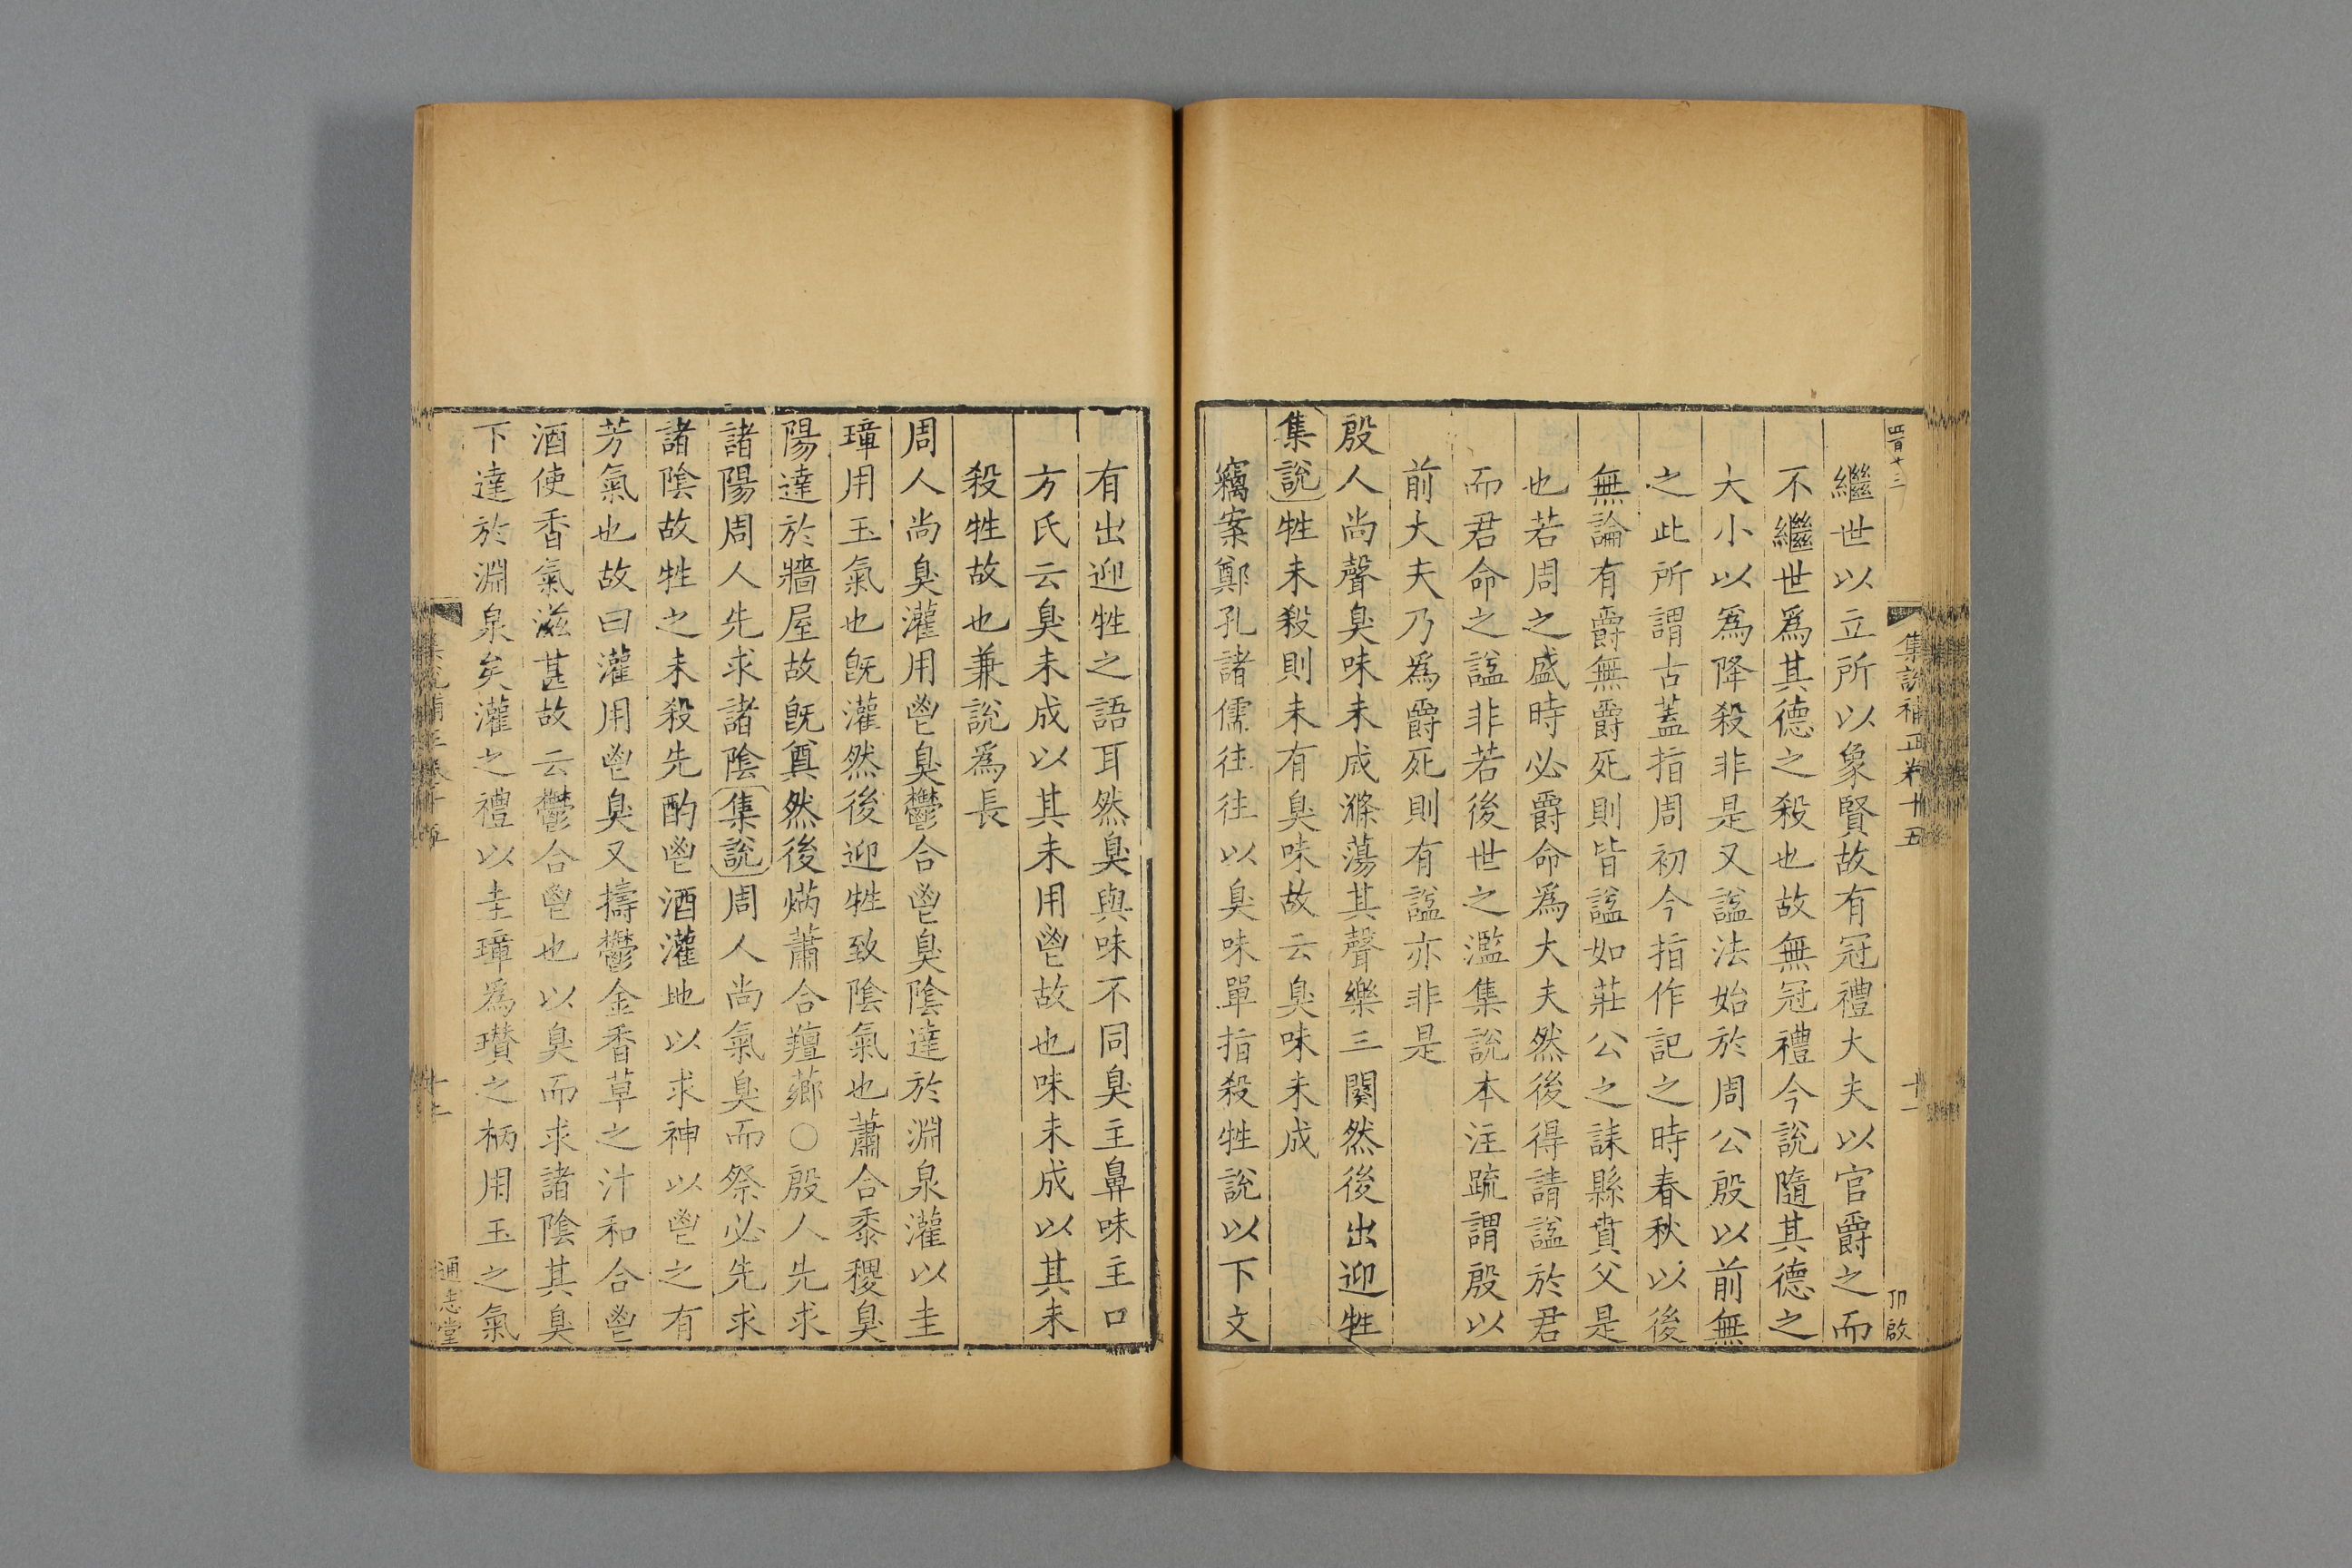 四百十三
集說補正卷廿五
十一
卭啟
繼世以立所以象賢故有冠禮大夫以官爵之而
不繼世爲其德之殺也故無冠禮今說隨其德之
大小以爲降殺非是又諡法始於周公殷以前無
之此所謂古蓋指周初今指作記之時春秋以後
無論有爵無爵死則皆諡如莊公之誄縣賁父是
也若周之盛時必爵命爲大夫然後得請諡於君
而君命之諡非若後世之濫集說本注疏謂殷以
前大夫乃爲爵死則有諡亦非是
殷人尚聲臭味未成滌蕩其聲樂三闋然後出迎牲
集說牲未殺則未有臭味故云臭味未成
竊案鄭孔諸儒往往以臭味單指殺牲說以下文
有出迎牲之語耳然臭與味不同臭主鼻味主口
方氏云臭未成以其未用鬯故也味未成以其未
殺牲故也兼說爲長
周人尚臭灌用鬯臭鬱合鬯臭陰達於淵泉灌以圭
璋用玉氣也旣灌然後迎牲致陰氣也蕭合黍稷臭
陽達於牆屋故旣奠然後焫蕭合羶薌○殷人先求
諸陽周人先求諸陰集說周人尚氣臭而祭必先求
諸陰故牲之未殺先酌鬯酒灌地以求神以鬯之有
芳氣也故曰灌用鬯臭又擣鬱金香草之汁和合鬯
酒使香氣滋甚故云鬱合鬯也以臭而求諸陰其臭
下達於淵泉矣灌之禮以圭璋爲瓚之柄用玉之氣
通志堂